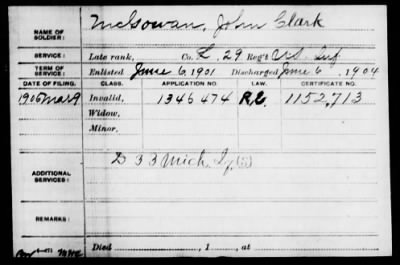 NAME OF SOLDIER: McGowan, John Clark
SERVICE: Late rank, Co. L, 29 Reg't U.S. Inf
TERM OF SERVICE: Enlisted June 6, 1901 Discharged June 6, 1904
DATE OF FILING. CLASS. APPLICATION NO. LAW. CERTIFICATE NO.
1905 Mar 9 Invalid, 1346474 R.E. 1152,713
Widow,
Minor,
ADDITIONAL SERVICES: D 33 Mich. If
REMARKS:
Died , 1 , at